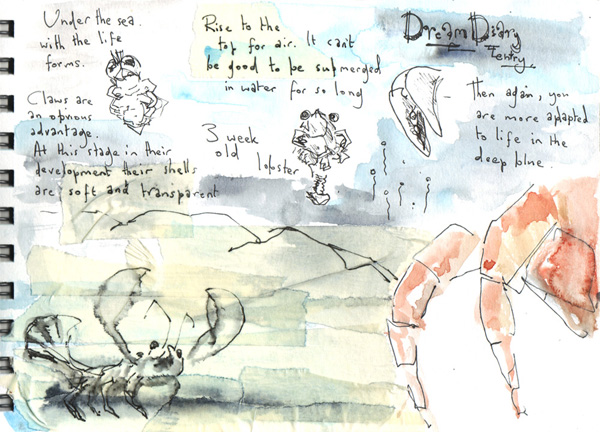 Under the sea.
with the life
forms.
Claws are
an obvious
advantage.
At this stage in their
development their shells
are soft and transparent
Rise to the
top for air. It can't
be good to be submerged
in water for so long
3 week
old lobster
Dream Diary
Then again, you
are more adapted
to life in the
deep blue.